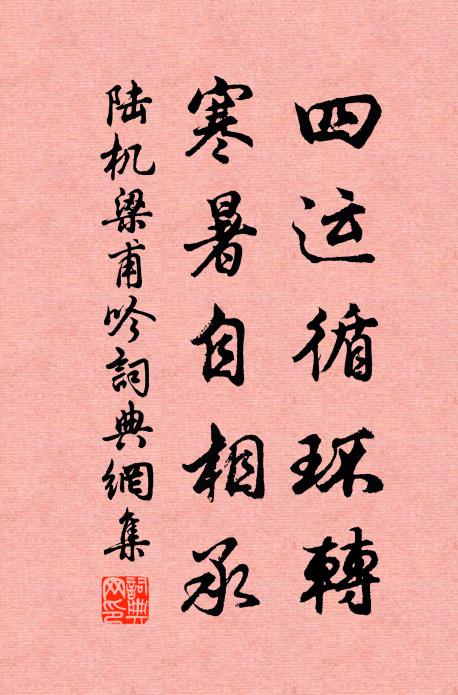 四运循环轉
寒暑自相承
陆机梁甫吟詞典網集
詞典网印